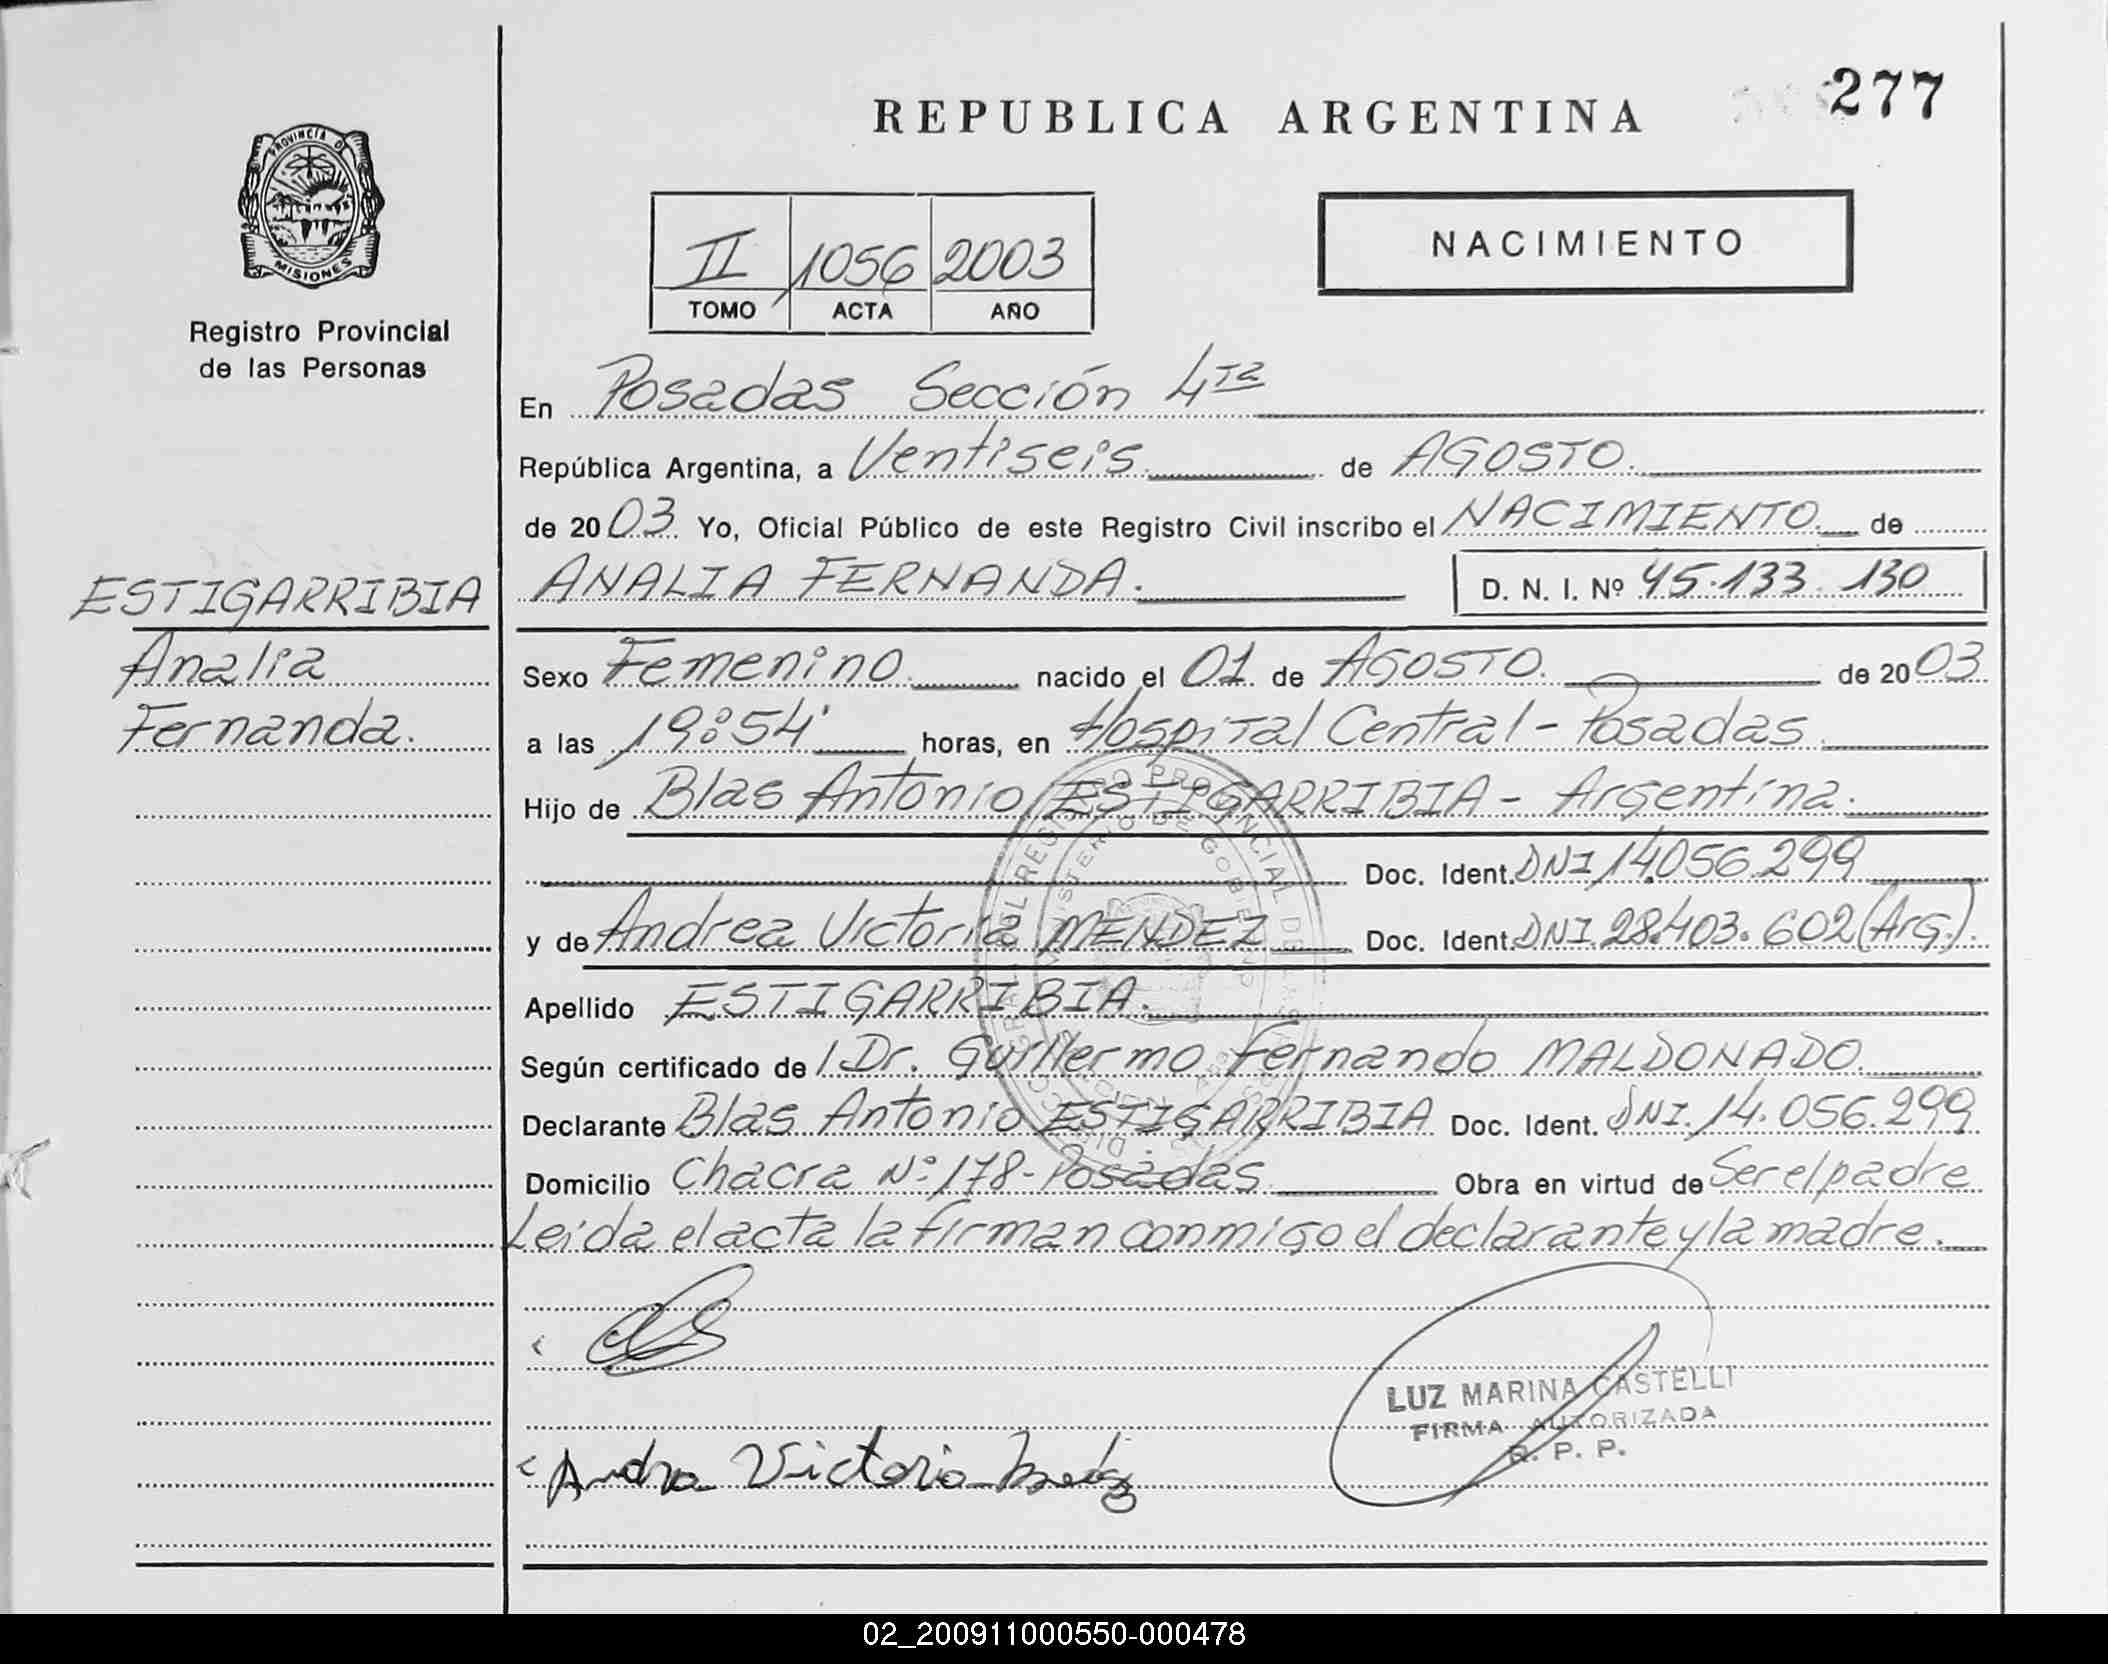 REPUBLICA ARGENTINA
277
PROVINCIA D
MISIONES
Registro Provincial
de las Personas
II 1056 2003
TOMO ACTA AÑO
NACIMIENTO
En Posadas Sección 4ta
República Argentina, a Ventiseis de AGOSTO.
de 2003. Yo, Oficial Público de este Registro Civil inscribo el NACIMIENTO de
ESTIGARRIBIA
Analia
Fernanda.
ANALIA FERNANDA.
D. N. I. Nº 45.133.130
Sexo Femenino nacido el 01 de AGOSTO. de 2003
a las 19:54' horas, en Hospital Central - Posadas
Hijo de Blas Antonio ESTIGARRIBIA - Argentina.
Doc. Ident. DNI 14.056.299
y de Andrea Victoria MENDEZ Doc. Ident. DNI. 28.403.602 (Arg.).
Apellido ESTIGARRIBIA.
Según certificado de Dr. Guillermo Fernando MALDONADO.
Declarante Blas Antonio ESTIGARRIBIA Doc. Ident. DNI. 14.056.299
Domicilio Chacra Nº 178 - Posadas Obra en virtud de Ser el padre
Leida el acta la firman conmigo el declarante y la madre.
LUZ MARINA CASTELLI
FIRMA AUTORIZADA
R. P. P.
Victoria
02_200911000550-000478